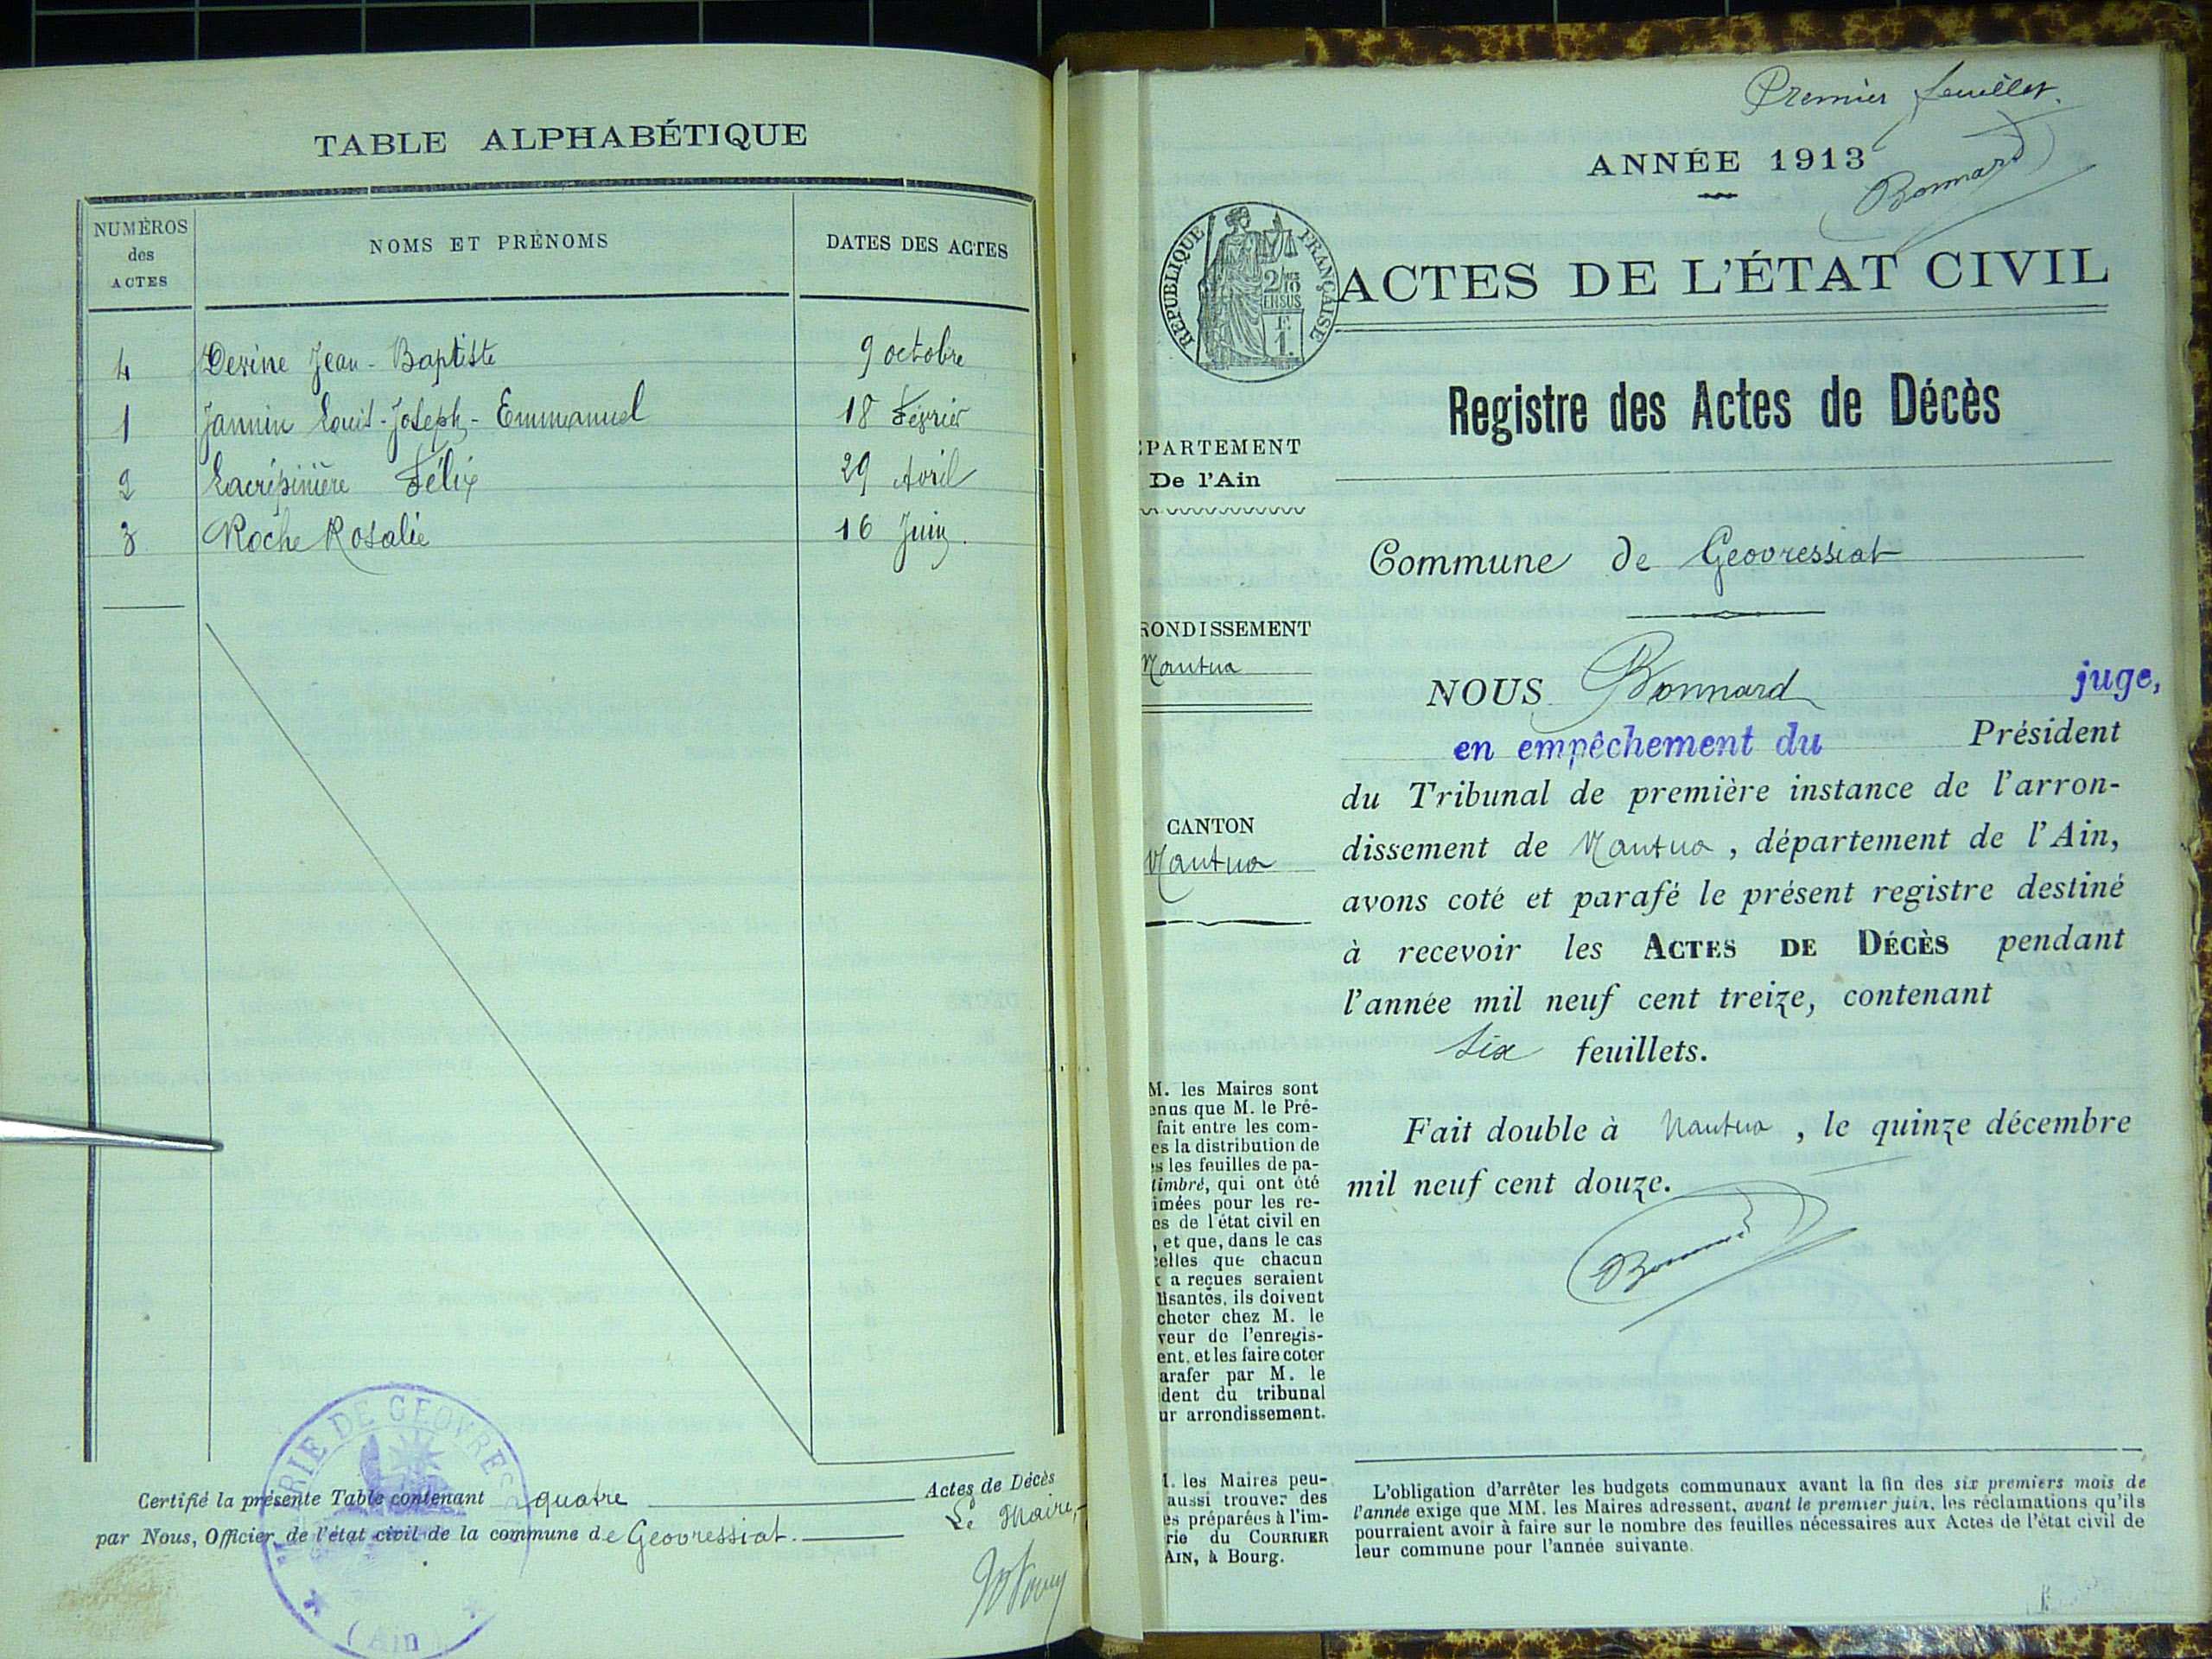 TABLE ALPHABÉTIQUE
NUMÉROS
des
ACTES
NOMS ET PRÉNOMS
DATES DES ACTES
4 Derine Jean-Baptiste 9 octobre
1 Jannin Louis-Joseph-Emmanuel 18 Février
2 Lacrépinière Félix 29 Avril
3 Roche Rosalie 16 Juin
Certifié la présente Table contenant quatre Actes de Décès
par Nous, Officier de l'état civil de la commune de Geovressiat. Le Maire,
RIE DE GEOVRES
(Ain)
Premier feuillet.
ANNÉE 1913
Bonnard
RÉPUBLIQUE FRANÇAISE
2/10
EN SUS
F.
1.
ACTES DE L'ÉTAT CIVIL
Registre des Actes de Décès
PARTEMENT
De l'Ain
Commune de Geovressiat
RONDISSEMENT
Nantua
CANTON
Nantua
NOUS Bonnard juge,
en empêchement du Président
du Tribunal de première instance de l'arron-
dissement de Nantua, département de l'Ain,
avons coté et parafé le présent registre destiné
à recevoir les ACTES DE DÉCÈS pendant
l'année mil neuf cent treize, contenant
six feuillets.
Fait double à Nantua, le quinze décembre
mil neuf cent douze.
Bonnard
M. les Maires sont
enus que M. le Pré-
fait entre les com-
es la distribution de
s les feuilles de pa-
timbré, qui ont été
imées pour les re-
es de l'état civil en
, et que, dans le cas
elles que chacun
x a reçues seraient
isantes, ils doivent
cheter chez M. le
veur de l'enregis-
ent, et les faire coter
arafer par M. le
dent du tribunal
ur arrondissement.
M. les Maires peu-
aussi trouver des
es préparées à l'im-
rie du COURRIER
AIN, à Bourg.
L'obligation d'arrêter les budgets communaux avant la fin des six premiers mois de
l'année exige que MM. les Maires adressent, avant le premier juin, les réclamations qu'ils
pourraient avoir à faire sur le nombre des feuilles nécessaires aux Actes de l'état civil de
leur commune pour l'année suivante.